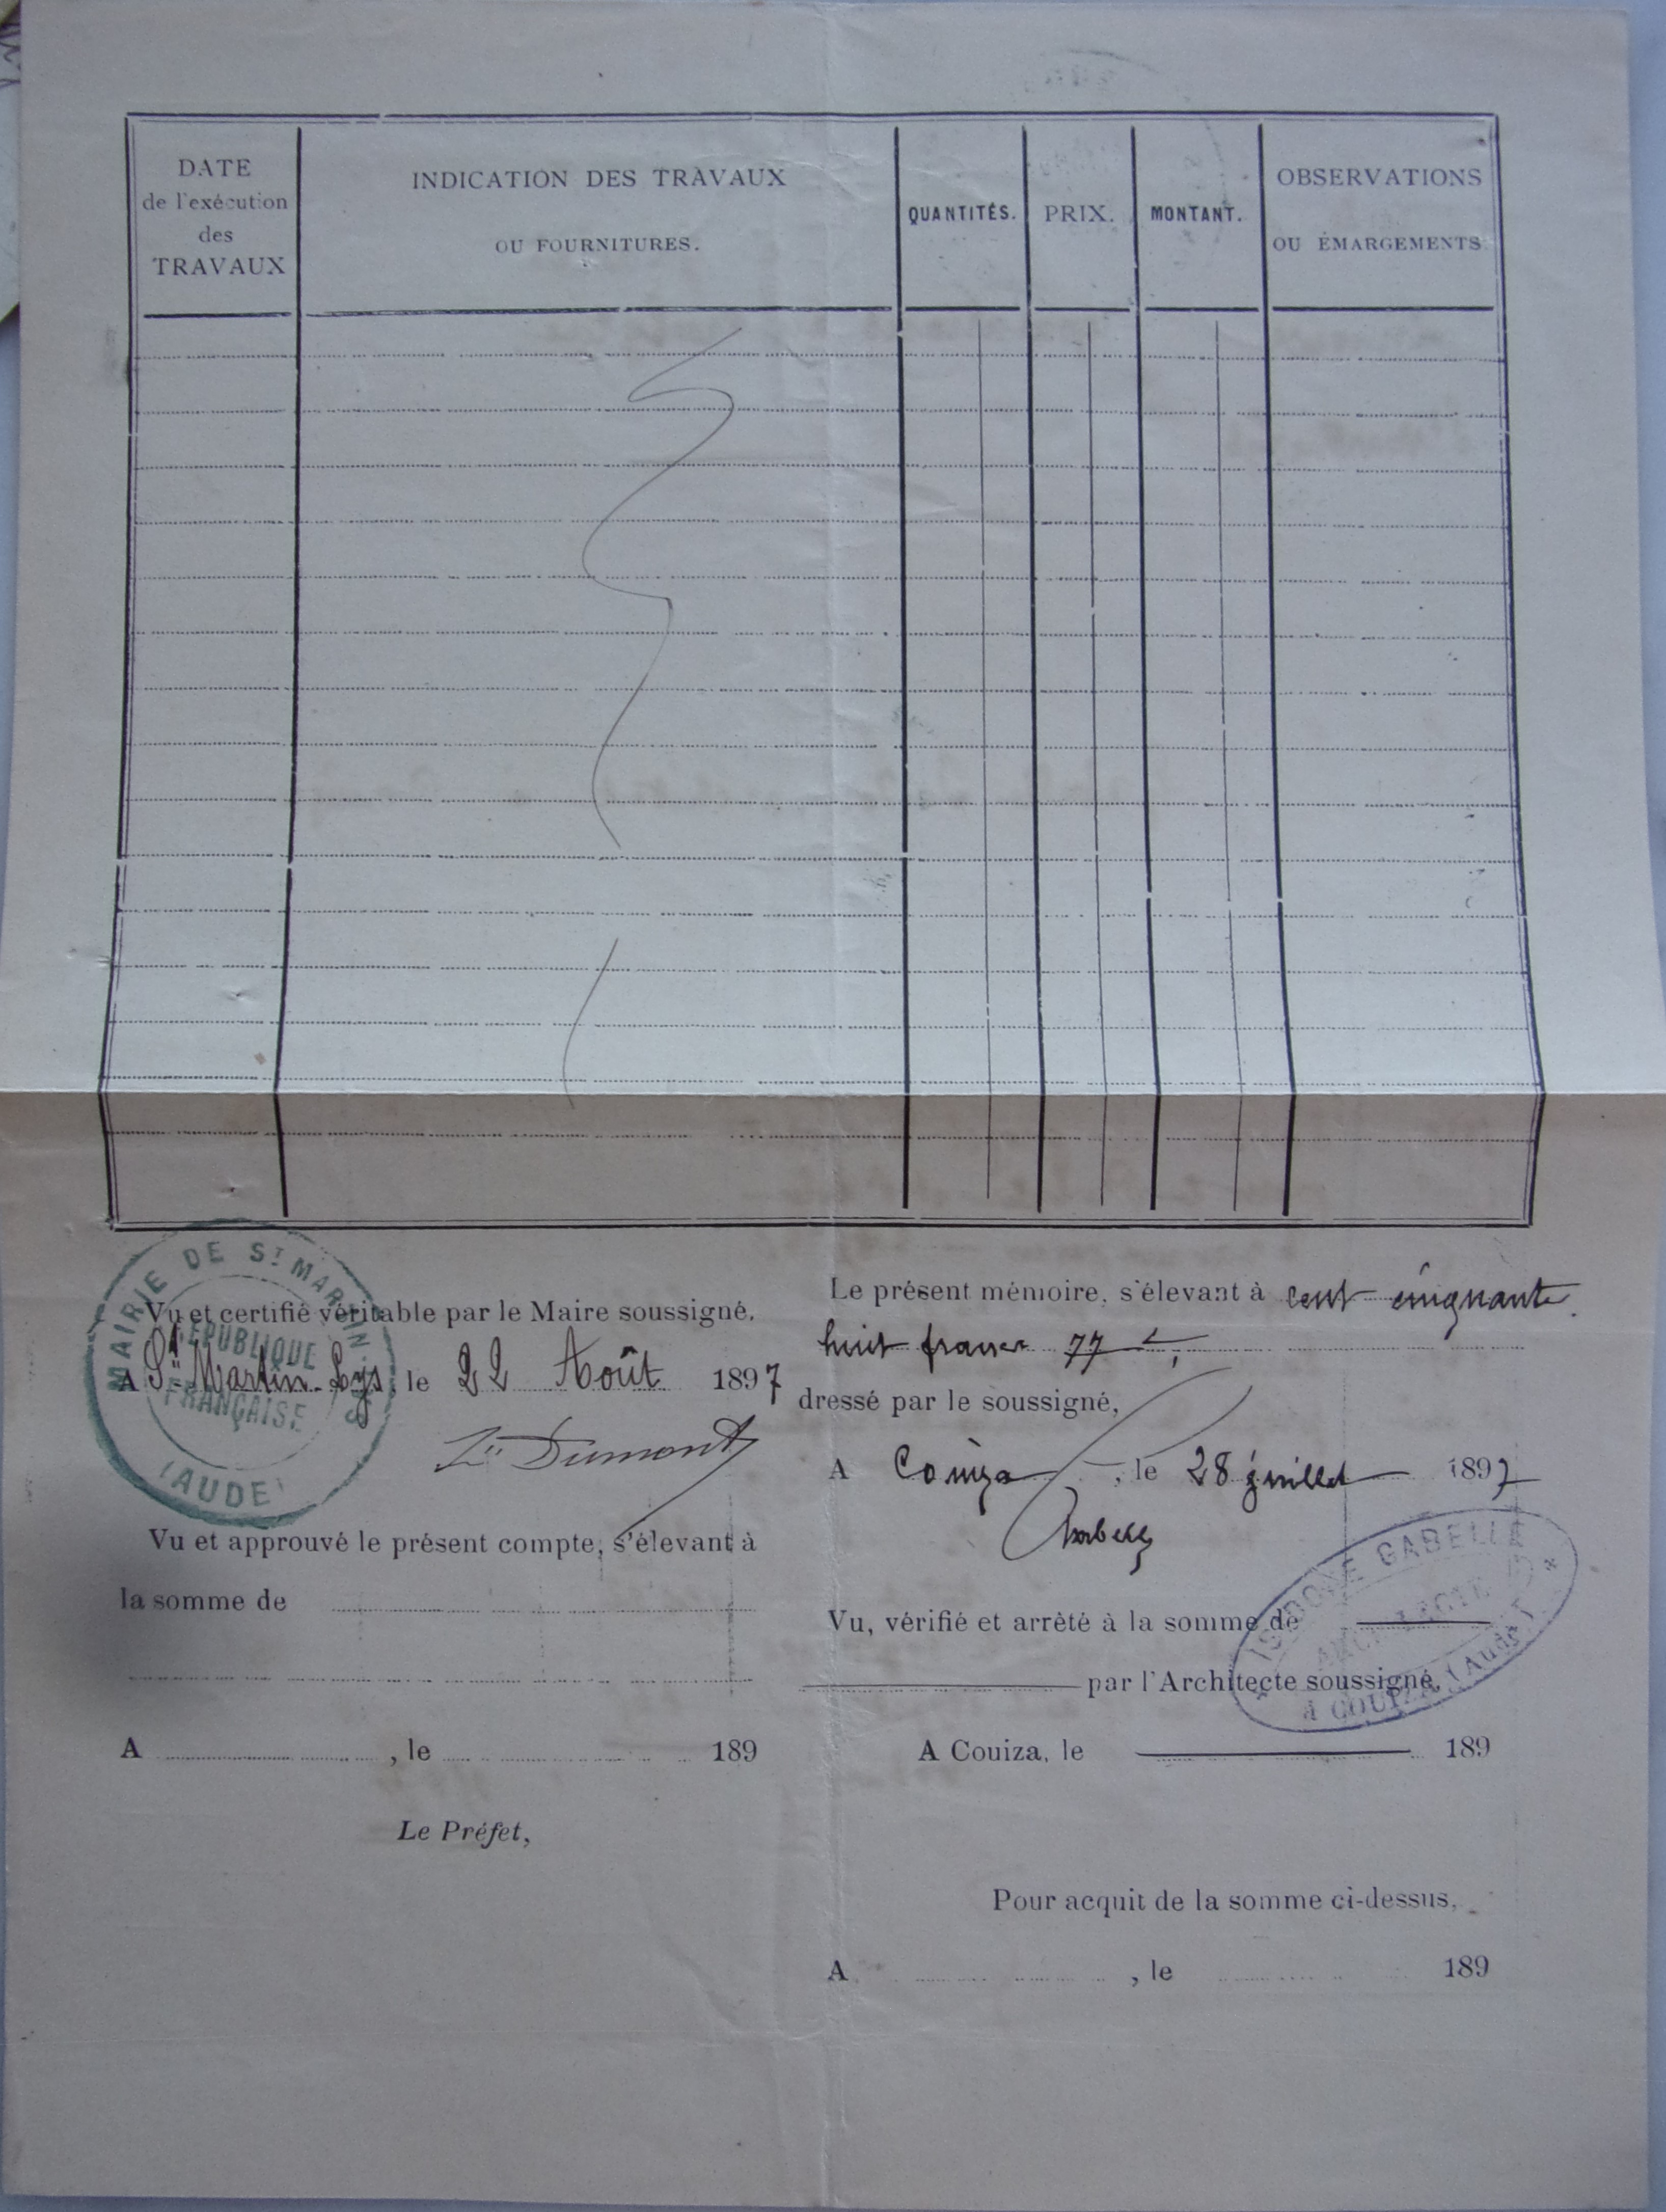 DATE
de l'exécution
des
TRAVAUX
INDICATION DES TRAVAUX
OU FOURNITURES.
QUANTITÉS.
PRIX.
MONTANT.
OBSERVATIONS
OU ÉMARGEMENTS
MAIRIE DE St MARTIN-LYS
RÉPUBLIQUE
FRANÇAISE
(AUDE)
Vu et certifié véritable par le Maire soussigné.
A St Martin-Lys, le 22 Août 1897
Dumont
Vu et approuvé le présent compte, s'élevant à
la somme de
A , le 189
Le Préfet,
Le présent mémoire, s'élevant à cent cinquante
huit francs 77 c,
dressé par le soussigné,
A Couiza, le 28 juillet 1897
ISIDORE GABELLA
ARCHITECTE
A COUIZA (Aude)
Vu, vérifié et arrêté à la somme de
par l'Architecte soussigné,
A Couiza, le 189
Pour acquit de la somme ci-dessus,
A , le 189